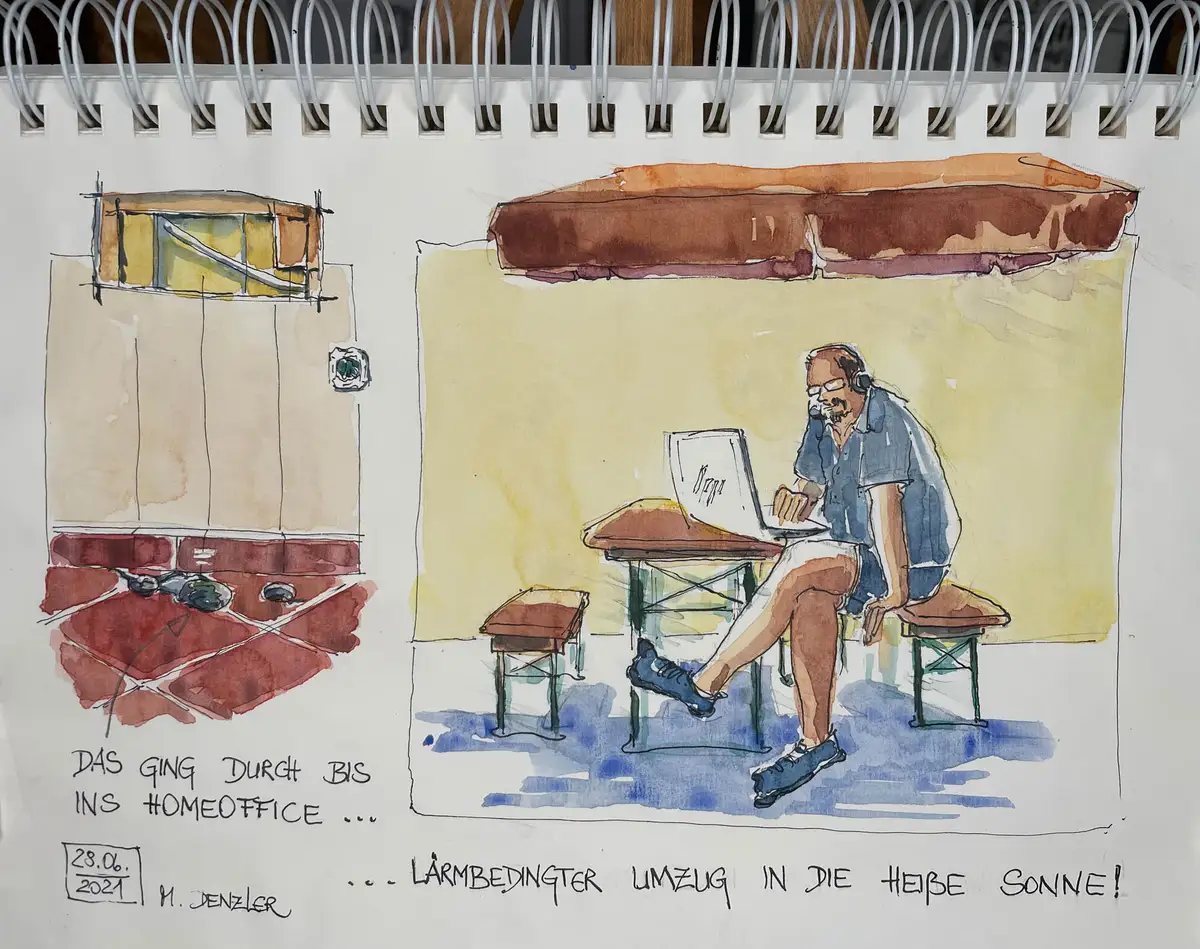 DAS GING DURCH BIS
INS HOMEOFFICE ...
28.06.
2021
M. DENZLER
... LÄRMBEDINGTER UMZUG IN DIE HEIßE SONNE!